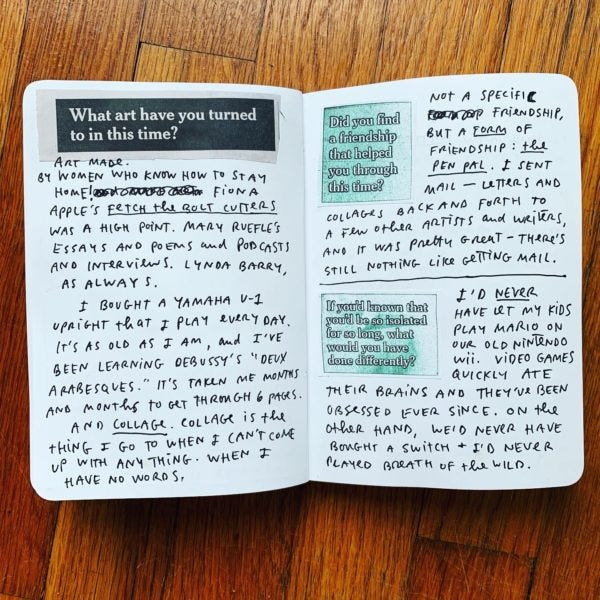 What art have you turned
to in this time?
ART MADE.
BY WOMEN WHO KNOW HOW TO STAY
HOME! FIONA
APPLE'S FETCH the BOLT CUTTERS
WAS A HIGH POINT. MARY RUEFLE'S
ESSAYS AND POEMS and PODCASTS
AND INTERVIEWS. LYNDA BARRY,
AS ALWAYS.
I BOUGHT A YAMAHA U-1
UPRIGHT that I PLAY every DAY.
IT'S AS OLD AS I AM, and I'VE
BEEN LEARNING DEBUSSY'S "DEUX
ARABESQUES." IT'S TAKEN ME MONTHS
AND MONTHS to GET THROUGH 6 PAGES.
AND COLLAGE. COLLAGE IS the
THING I GO TO WHEN I CAN'T COME
UP WITH ANYTHING. WHEN I
HAVE NO WORDS.
Did you find
a friendship
that helped
you through
this time?
NOT A SPECIFIC
FRIENDSHIP,
BUT A FORM OF
FRIENDSHIP: the
PEN PAL. I SENT
MAIL — LETTERS AND
COLLAGES BACK AND FORTH TO
A FEW OTHER ARTISTS and WRITERS,
AND IT WAS PRETTY GREAT — THERE'S
STILL NOTHING LIKE GETTING MAIL.
If you'd known that
you'd be so isolated
for so long, what
would you have
done differently?
I'D NEVER
HAVE LET MY KIDS
PLAY MARIO ON
OUR OLD NINTENDO
WII. VIDEO GAMES
QUICKLY ATE
THEIR BRAINS AND THEY'VE BEEN
OBSESSED EVER SINCE. ON the
OTHER HAND, WE'D NEVER HAVE
BOUGHT A SWITCH + I'D NEVER
PLAYED BREATH OF the WILD.